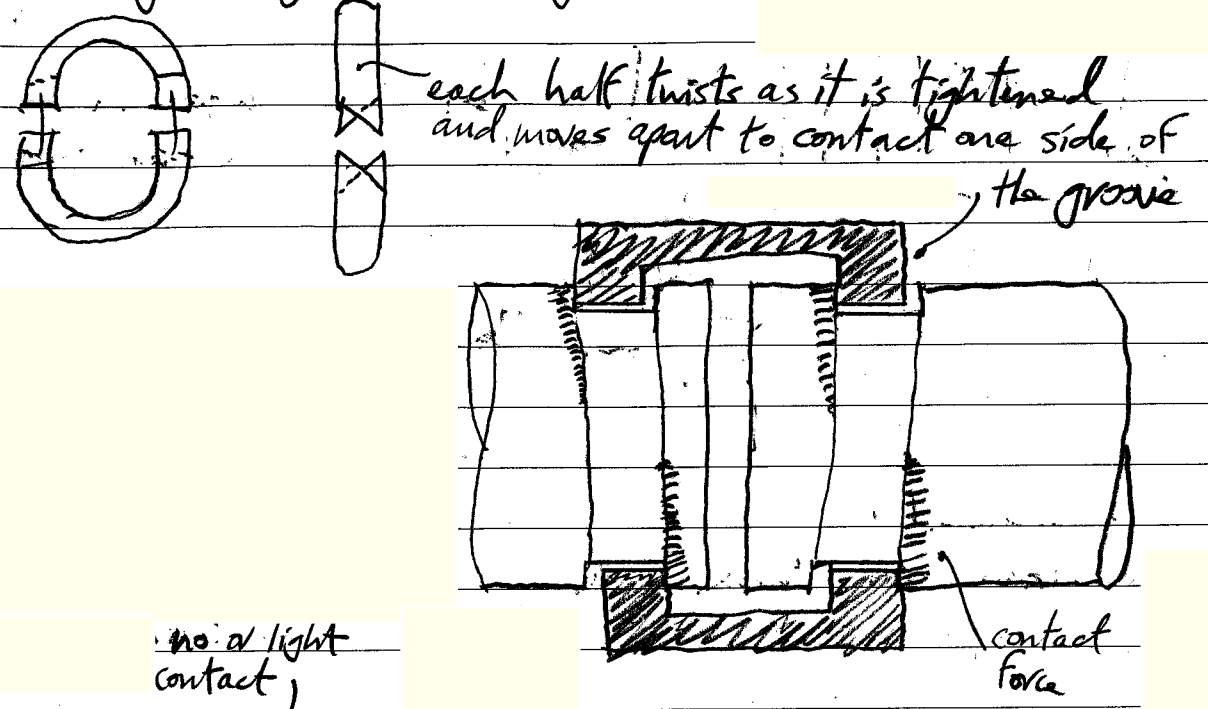 each half twists as it is tightened
and moves apart to contact one side of
the groove
no or light
contact,
contact
force